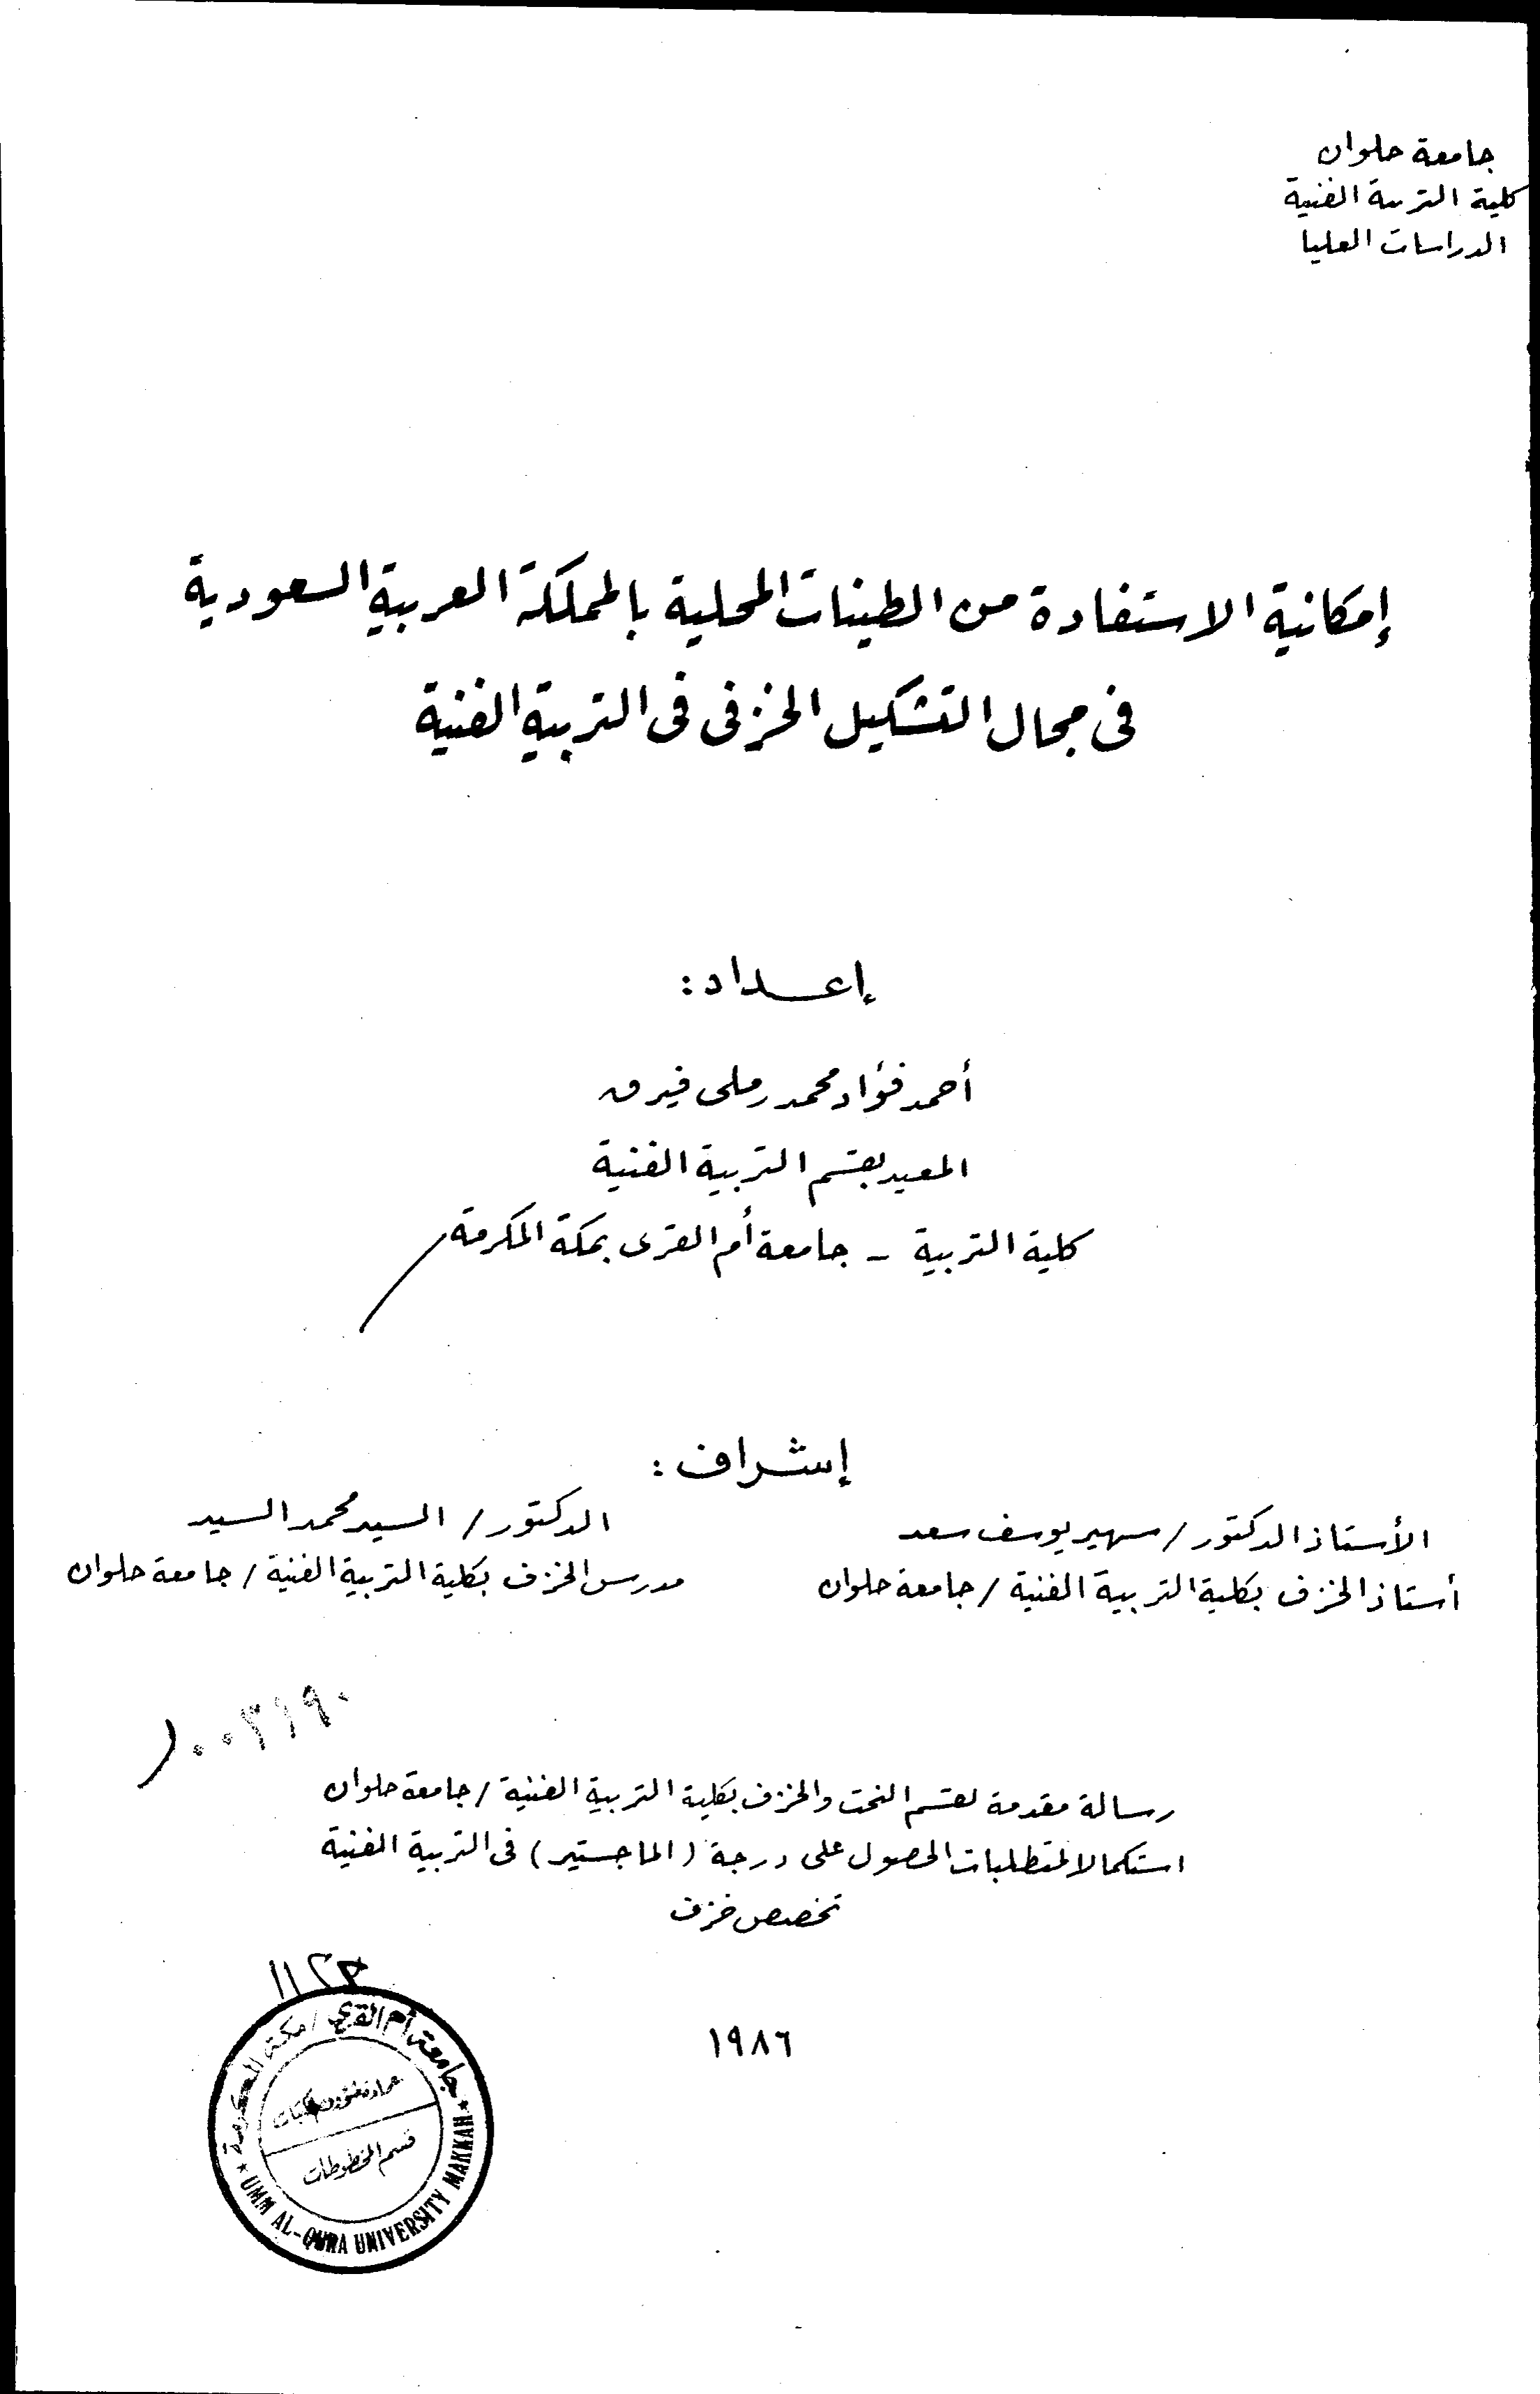 جامعة حلوان
كلية التربية الفنية
الدراسات العليا
إمكانية الاستفادة من الطينات المحلية بالمملكة العربية السعودية
فى مجال التشكيل الخزفى فى التربية الفنية
إعداد :
أحمد فؤاد محمد رملى فيرق
المعيد بقسم التربية الفنية
كلية التربية - جامعة أم القرى بمكة المكرمة
إشراف :
الأستاذ الدكتور / سهير يوسف سعد
أستاذ الخزف بكلية التربية الفنية / جامعة حلوان
الدكتور / السيد محمد السيد
مدرس الخزف بكلية التربية الفنية / جامعة حلوان
رسالة مقدمة لقسم النحت والخزف بكلية التربية الفنية / جامعة حلوان
استكمالا لمتطلبات الحصول على درجة (الماجستير) فى التربية الفنية
تخصص خزف
١٩٨٦
١١٢٣
جامعة أم القرى / مكة المكرمة
عمادة شؤون المكتبات
قسم المخطوطات
UMM AL-QURA UNIVERSITY MAKKAH